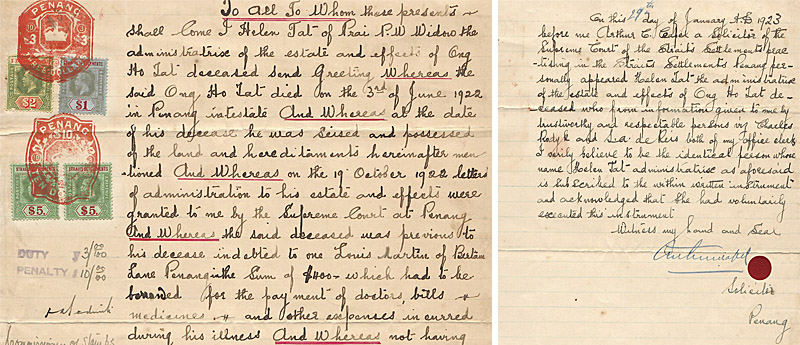 PENANG
$2
$1
PENANG
STRAITS SETTLEMENTS
$5.
$5.
DUTY $ 3/00
PENALTY $ 10/00
To All To Whom these presents
shall Come I Helen Tat of Prai P.W Widow the
administratrix of the estate and effects of Ong
Ho Tat deceased send Greeting Whereas the
said Ong Ho Tat died on the 3rd of June 1922
in Penang intestate And Whereas at the date
of his decease he was seised and possessed
of the land and hereditaments hereinafter men
tioned And Whereas on the 19 October 1922 letters
of administration to his estate and effects were
granted to me by the Supreme Court at Penang
And Whereas the said deceased was previous to
his decease indebted to one Louis Martin of
Lane Penang in the Sum of $400- which had to be
for the payment of doctors, bills
medicines and other expenses in curred
during his illness And Whereas not having
On this 19th day of January A.D 1923
before me Arthur a Solicitor of the
Supreme Court of the Straits Settlements prac
tising in the Straits Settlements Penang per-
sonally appeared Helen Tat the administratrix
of the estate and effects of Ong Ho Tat de-
ceased who from information given to me by
trustworthy and respectable persons viz Charles
and both of my office clerks
I verily believe to be the identical person whose
name Helen Tat administratrix as aforesaid
is subscribed to the within written instrument
and acknowledged that she had voluntarily
executed this instrument
Witness my hand and Seal
Solicitor
Penang